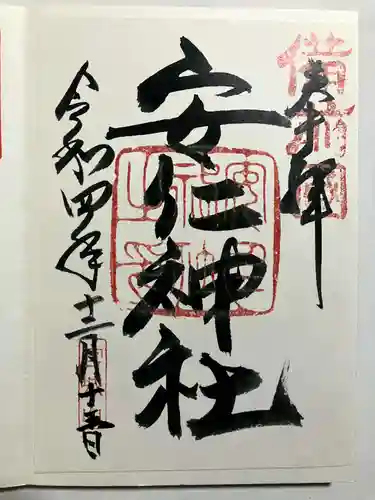 奉拝
備前國
安仁神社
令和四年十二月十五日